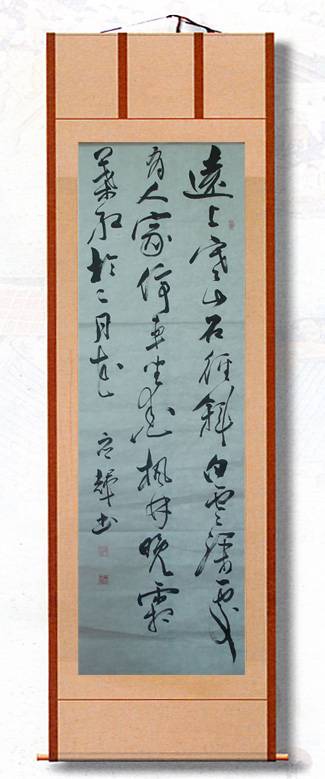 遠上寒山石徑斜白雲深處
有人家停車坐愛楓林晚霜
葉紅於二月花 書